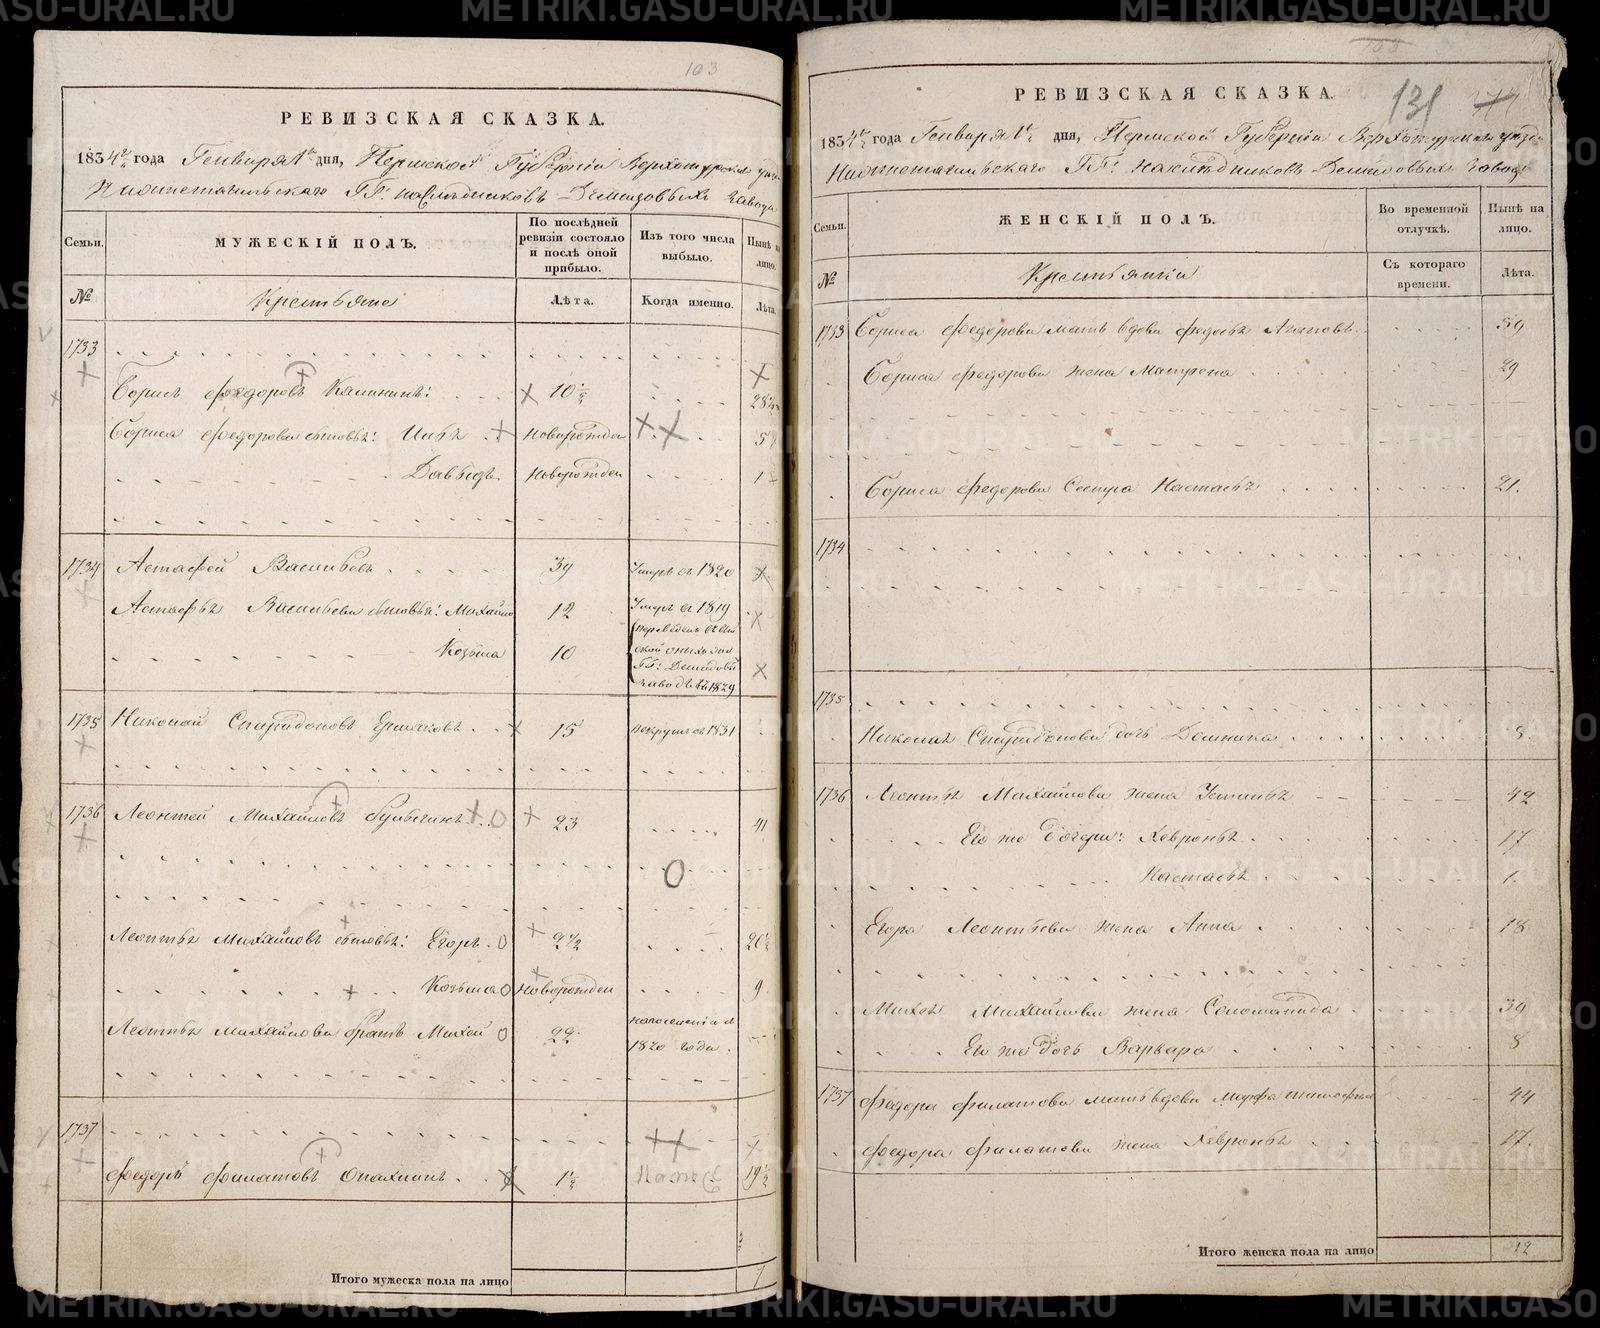 METRIKI.GASO-URAL.RU
103
РЕВИЗСКАЯ СКАЗКА.
1834го года Генваря 1го дня, Пермской Губерніи Верхотурскаго уезда
Нижнетагильскаго ГГ: наследниковъ Демидовыхъ Завода
Семьи.
МУЖЕСКІЙ ПОЛЪ.
По послѣдней ревизіи состояло и послѣ оной прибыло.
Изъ того числа выбыло.
Нынѣ на лицо.
№
Крестьяне
Лѣта.
Когда именно.
Лѣта.
1733
Борисъ Федоровъ Калининъ: 10½ 28½
Бориса Федорова сыновья: Новорожден 5
Давыдъ Новорожден 1
1734 Астафей Васильевъ 39 Умеръ въ 1820
Астафья Васильева сыновья: Михайло 12 Умеръ въ 1819
Козьма 10
ГГ: Демидовы
1829
1735 Николай Спиридоновъ Ермаковъ 15 Рекрутъ въ 1831
1736 Леонтей Михайловъ Булыгинъ 23 41
Леонтья Михайлова сыновья: Егоръ 2½ 20½
Козьма Новорожден 9
Леонтья Михайлова братъ Михей 22
1820 года
1737
Федоръ Филатовъ Опахнинъ 1½ 19½
Итого мужеска пола на лицо 7
103
131
РЕВИЗСКАЯ СКАЗКА.
1834го года Генваря 1го дня, Пермской Губерніи Верхотурскаго уезда
Нижнетагильскаго ГГ: наследниковъ Демидовыхъ Завода
Семьи.
ЖЕНСКІЙ ПОЛЪ.
Во временной отлучкѣ.
Нынѣ на лицо.
№
Крестьянки
Съ котораго времени.
Лѣта.
1733 Бориса Федорова мать вдова Федосья 59
Бориса Федорова жена Матрена 29
Бориса Федорова Сестра Настасья 21.
1734
1735
Николая Спиридонова дочь Домника 8
1736 Леонтья Михайлова жена Устинья 42
Его же дочери: Хевронья 17
Настасья 1.
Егора Леонтьева жена Анна 18
Михея Михайлова жена Соломанида 39
Его же дочь Варвара 8
1737 Федора Филатова мать вдова Марфа 44
Федора Филатова жена Хевронья 17.
Итого женска пола на лицо 12